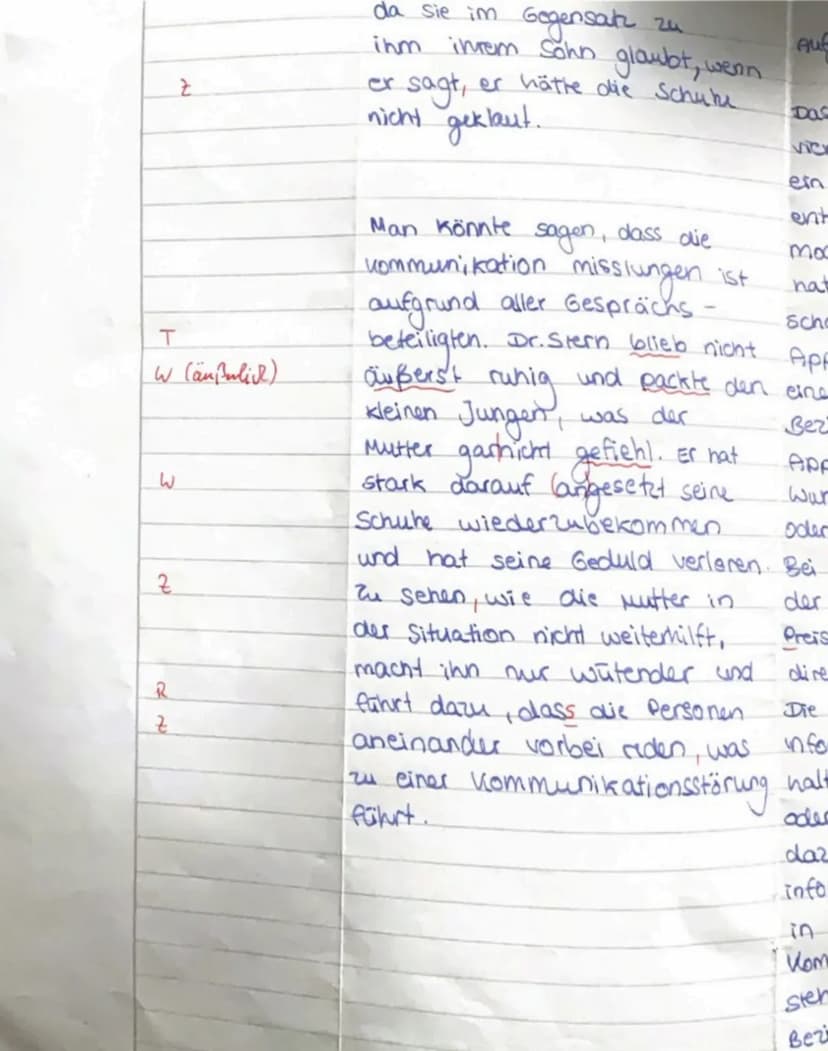 da sie im Gegensatz zu
ihm ihrem Sohn glaubt, wenn
Z
er sagt, er hätte die Schuhe
nicht geklaut.
Man könnte sagen, dass die
Kommunikation misslungen ist
aufgrund aller Gesprächs-
T
beteiligten. Dr. Stern blieb nicht
W (äußerlich)
äußerst ruhig und packte den
kleinen Jungen, was der
Mutter garnicht gefiehl. Er hat
W
stark darauf angesetzt seine
Schuhe wiederzubekommen
und hat seine Geduld verloren.
Z
Zu sehen, wie die Mutter in
der Situation nicht weiterhilft,
macht ihn nur wütender und
R
führt dazu, dass die Personen
Z
aneinander vorbei reden, was
zu einer Kommunikationsstörung
führt.
Auf
Das
vier
ein
ent
mod
hat
Scho
App
eine
Bezi
App
wur
oder
Bei
der
Preis
dire
Die
info
halt
oder
daz
info
in
Kom
ster
Bezi